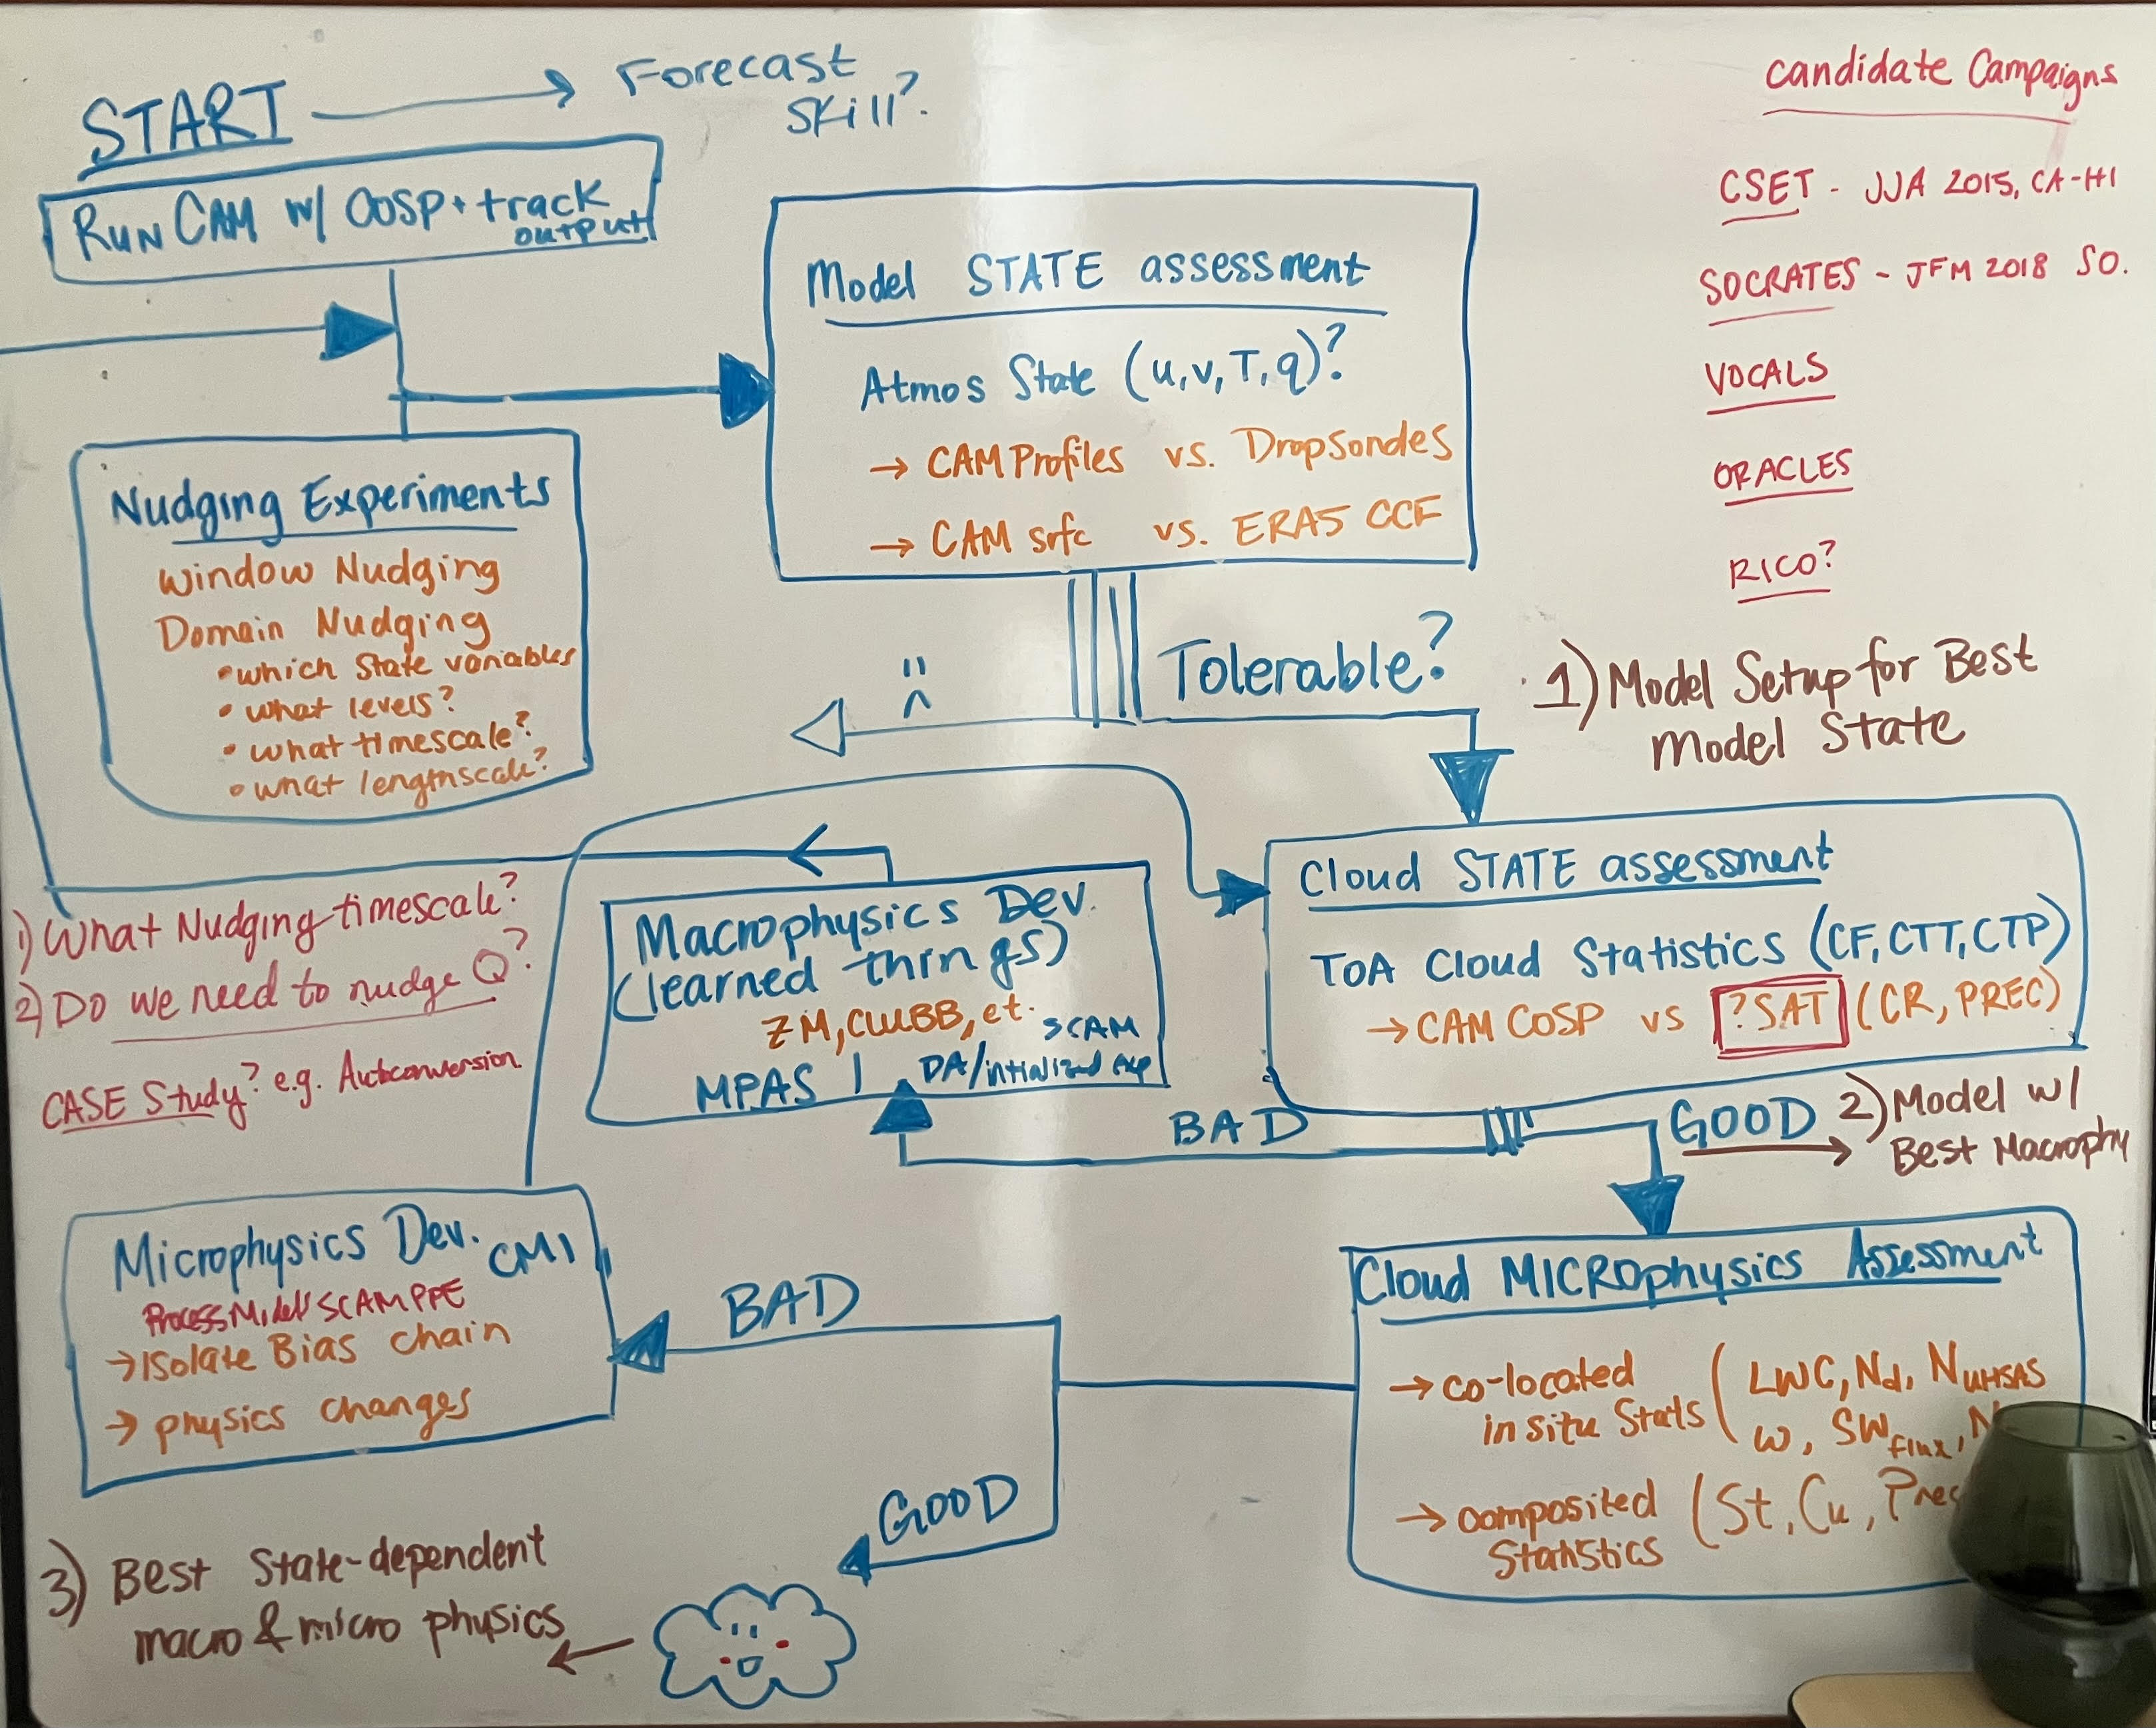 START
Forecast
Skill?
RUN CAM w/ COSP + track
output
Model STATE assessment
Atmos State (u,v,T,q)?
→ CAM Profiles vs. Dropsondes
→ CAM srfc vs. ERA5 CCF
candidate Campaigns
CSET - JJA 2015, CA-HI
SOCRATES - JFM 2018 SO.
VOCALS
ORACLES
RICO?
Nudging Experiments
Window Nudging
Domain Nudging
• which State variables
• what levels?
• what timescale?
• what lengthscale?
Tolerable?
1) Model Setup for Best
Model State
Cloud STATE assessment
TOA Cloud Statistics (CF, CTT, CTP)
→ CAM COSP vs ?SAT (CR, PREC)
Macrophysics Dev.
(learned things)
ZM, CLUBB, et. SCAM
MPAS | DA/intialized exp
1) What Nudging timescale?
2) Do we need to nudge Q?
CASE Study? e.g. Autoconversion
BAD
GOOD
2) Model w/
Best Macrophy
Microphysics Dev. CM1
Process Model/SCAM PPE
→ Isolate Bias chain
→ physics changes
BAD
Cloud MICROphysics Assessment
→ co-located
in situ Stats (LWC, Nd, NUHSAS
w, SWflux, N
→ composited
Statistics (St, Cu, Prec
GOOD
3) Best State-dependent
macro & micro physics